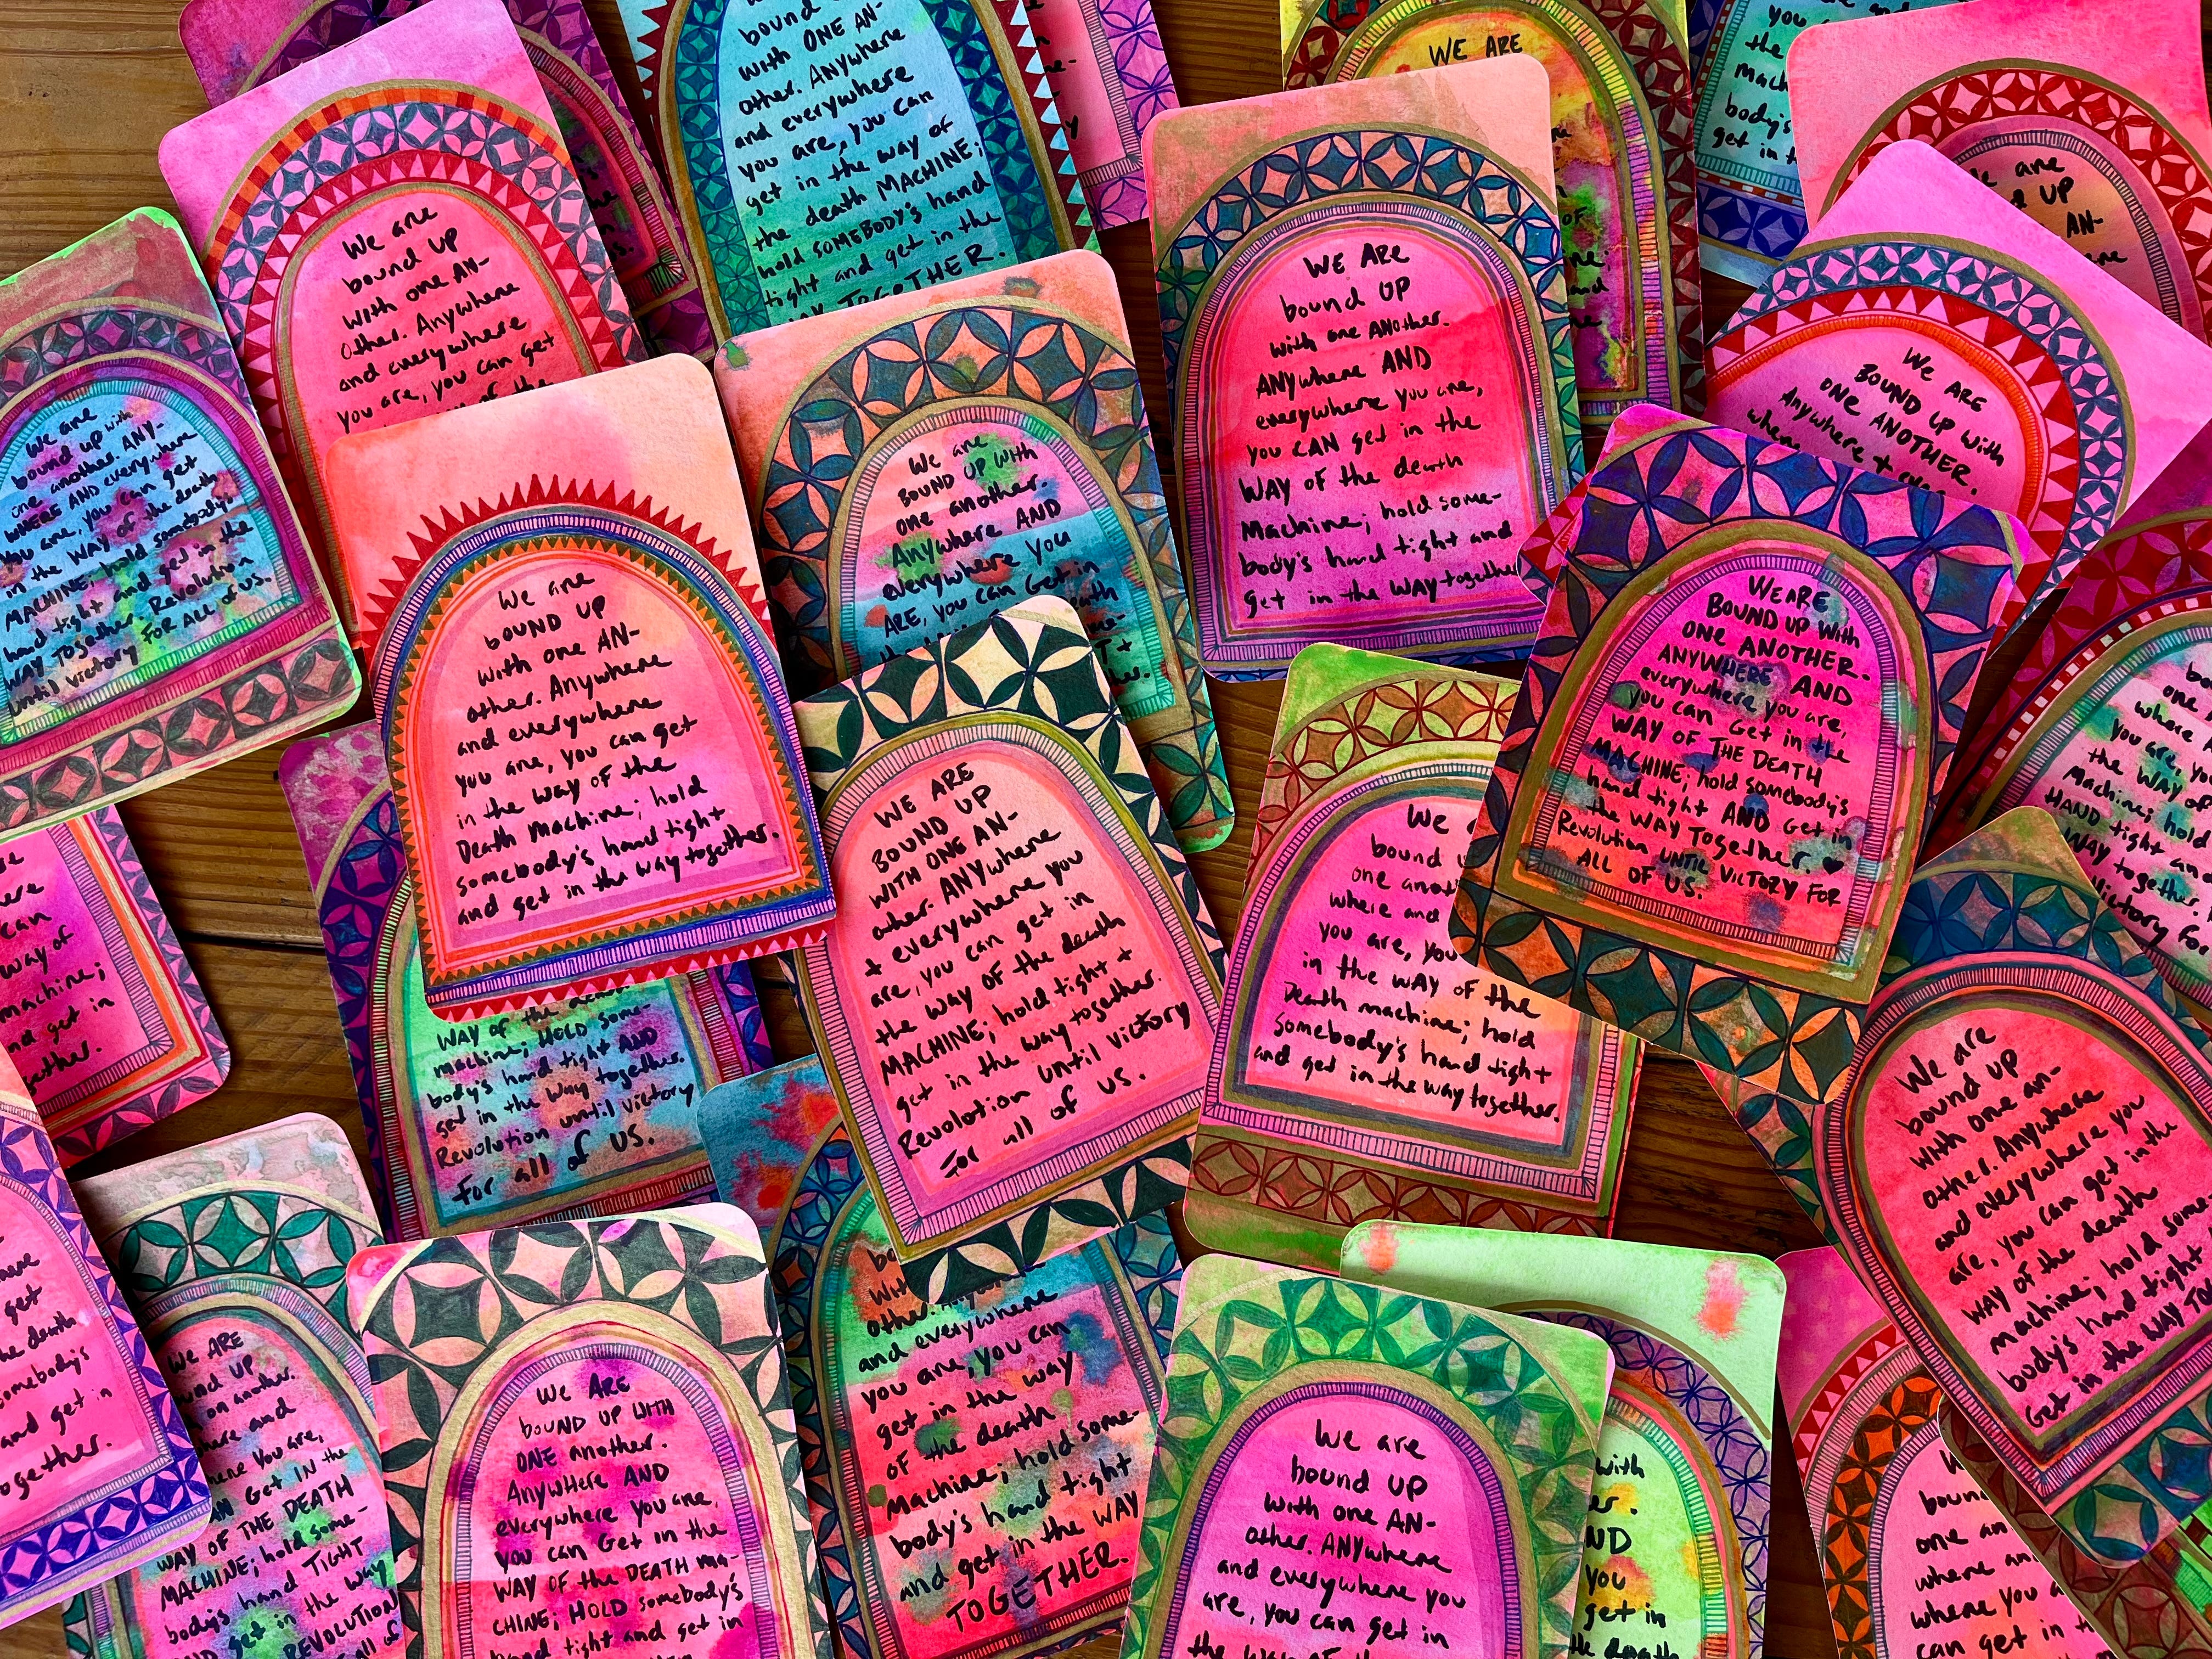 We are
bound UP
with one AN-
other. Anywhere
and everywhere
you are, you can get
of the
bound
with ONE AN-
other. Anywhere
and everywhere
you are, you can
get in the way of
the death MACHINE;
hold SOMEBODY'S hand
tight and get in the
TOGETHER.
WE ARE
WE ARE
bound UP
with one ANother.
ANYwhere AND
everywhere you are,
you CAN get in the
WAY of the death
Machine; hold some-
body's hand tight and
get in the WAY together
you
the
mach
body's
get in
are
UP
AN-
We are
BOUND UP with
ONE ANOTHER.
Anywhere +
We are
bound up with
one another. ANY-
WHERE AND everywhere
you are, you can get
in the WAY of the death
MACHINE; hold somebody's
hand tight and get in the
WAY Together. Revolution
until victory FOR ALL of US.
We are
BOUND UP with
one another.
Anywhere AND
everywhere you
ARE, you can Get in
We are
bound UP
with one AN-
other. Anywhere
and everywhere
you are, you can get
in the WAY of the
Death machine; hold
somebody's hand tight
and get in the way together.
WE ARE
BOUND UP With
ONE ANOTHER.
ANYWHERE AND
everywhere you are,
you can Get in the
WAY OF THE DEATH
MACHINE; hold somebody's
hand tight AND Get in
the WAY Together ♥
Revolution UNTIL VICTORY FOR
ALL OF US.
one
where
you are,
the WAY of
Machine; hold
HAND tight and
WAY together.
Victory for
WE ARE
BOUND UP
WITH ONE AN-
other. ANYwhere
+ everywhere you
are, you can get in
the WAY of the death
MACHINE; hold tight +
get in the way together.
Revolution until Victory
For all of us.
We
bound
one
where and
you are, you
in the WAY of the
Death machine; hold
somebody's hand tight
and get in the way together.
can
way of
machine;
and get in
WAY of the death
machine; HOLD some-
body's hand tight AND
get in the way together.
Revolution until victory
For all of US.
We are
bound up
with one an-
other. Anywhere
and everywhere you
are, you can get in the
WAY of the death
machine; hold some
body's hand tight
Get in the WAY
get
the death
somebody's
and get in
together.
We ARE
UP
on another.
and
you are,
Get IN the
WAY OF THE DEATH
MACHINE; hold some-
body's hand TIGHT
AND get in the way
REVOLUTION
all of
We ARE
bOUND UP WITH
ONE another.
AnyWHERE AND
everywhere you are,
you can Get in the
WAY OF the DEATH MA-
CHINE; HOLD somebody's
hand tight and get in
other.
and everywhere
you are, you can
get in the way
of the death
Machine; hold some-
body's hand tight
and get in the WAY
TOGETHER.
We are
bound UP
with one AN-
other. ANYwhere
and everywhere you
are, you can get in
the way of the
with
you
get in
the death
boun
one an
where an
where you
can get in